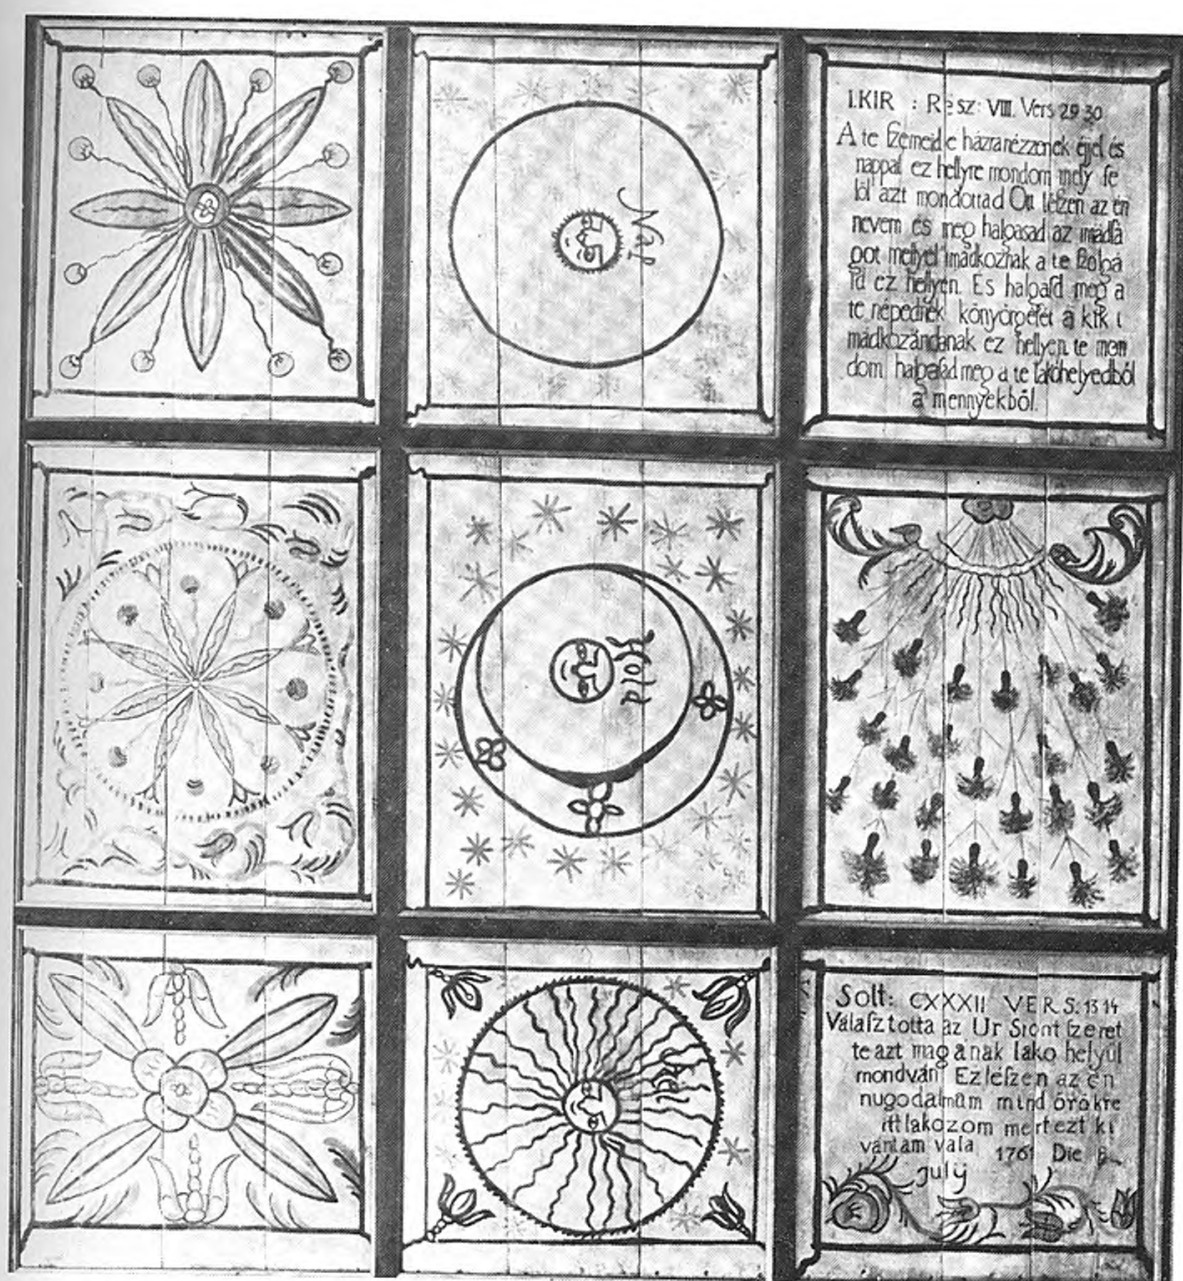 Nap
I.KIR : Resz: VIII. Vers 29 30
A te ſzemeid e házra nézzenek éjjel és
nappal ez hellyre mondom mely fe
lől azt mondottad Ott léſzen az én
nevem és meg halgasad az imádſá
got mellyel imádkoznak a te ſzolgá
id ez hellyen. Es halgaſd meg a
te népednek könyörgéſét a kik i
mádkozándanak ez hellyen te mon
dom halgaſad meg a te lakóhelyedből
a mennyekből.
Hold
Solt: CXXXII VERS. 13 14
Válaſztotta az Ur Siont ſzeret
te azt magának lako helyül
mondván Ez léſzen az én
nugodalmam mind örökre
itt lakozom mert ezt ki
vántam vala 1761 Die
july